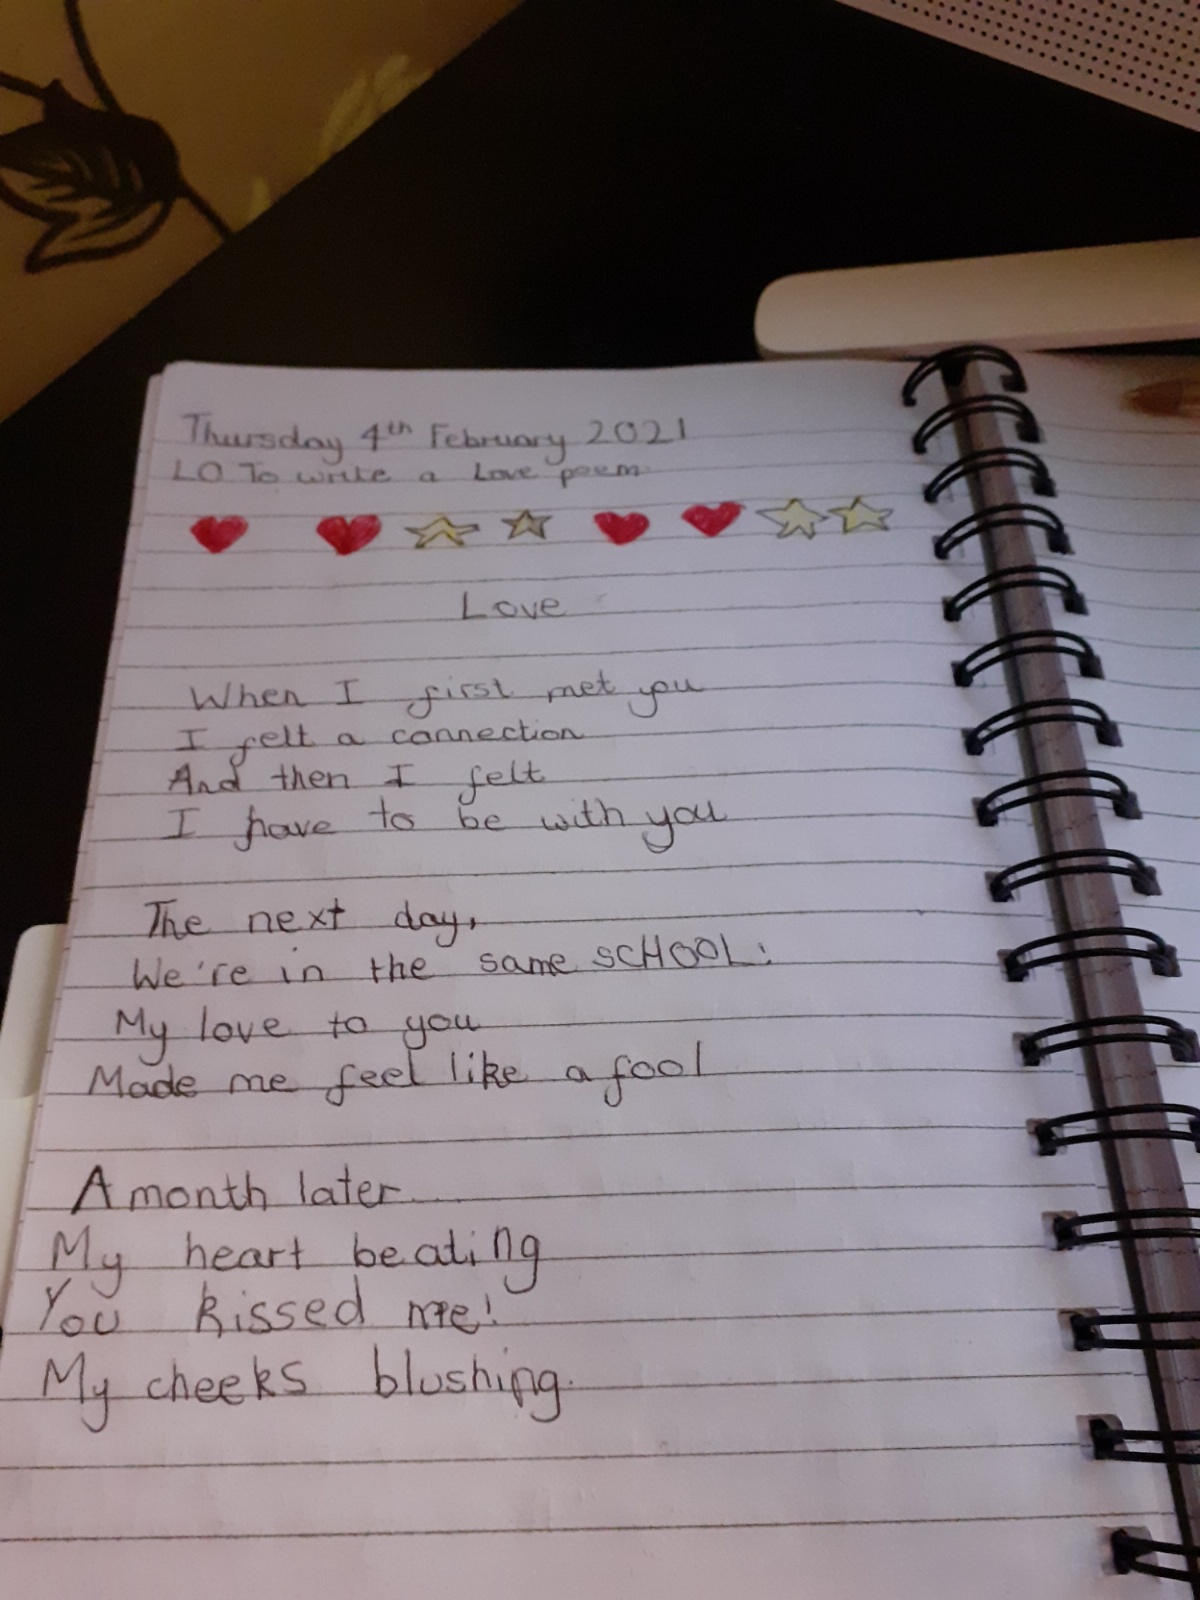 Thursday 4th February 2021
LO To write a Love poem
Love
When I first met you
I felt a connection
And then I felt
I have to be with you
The next day,
We're in the same SCHOOL!
My love to you
Made me feel like a fool
A month later
My heart beating
You kissed me!
My cheeks blushing.